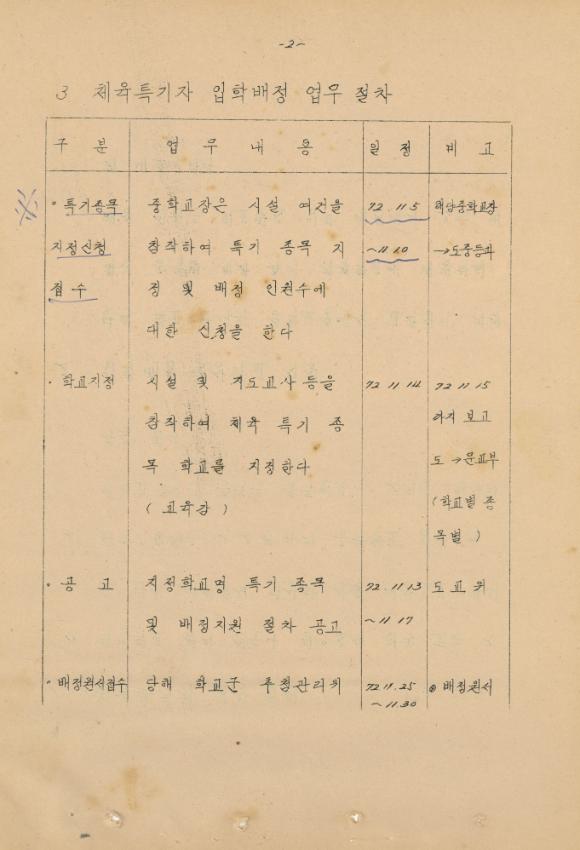 -2-
3 체육특기자 입학배정 업무 절차
구 분 업 무 내 용 일 정 비 고
· 특기종목 중학교장은 시설 여건을 72. 11 5 해당중학교장
지정신청 참작하여 특기 종목 지 ~11 10 →도중등과
접 수 정 및 배정 인원수에
대한 신청을 한다
· 학교지정 시설 및 지도교사 등을 72 11 14 72 11 15
참작하여 체육 특기 종 까지 보고
목 학교를 지정한다 도 →문교부
( 교육감 ) (학교별 종
목별 )
· 공 고 지정학교명 특기 종목 72 11 13 도 교 위
및 배정지원 절차 공고 ~11 17
· 배정원서접수 당해 학교군 추첨관리위 72. 11. 25 ⊙ 배정원서
~11.30